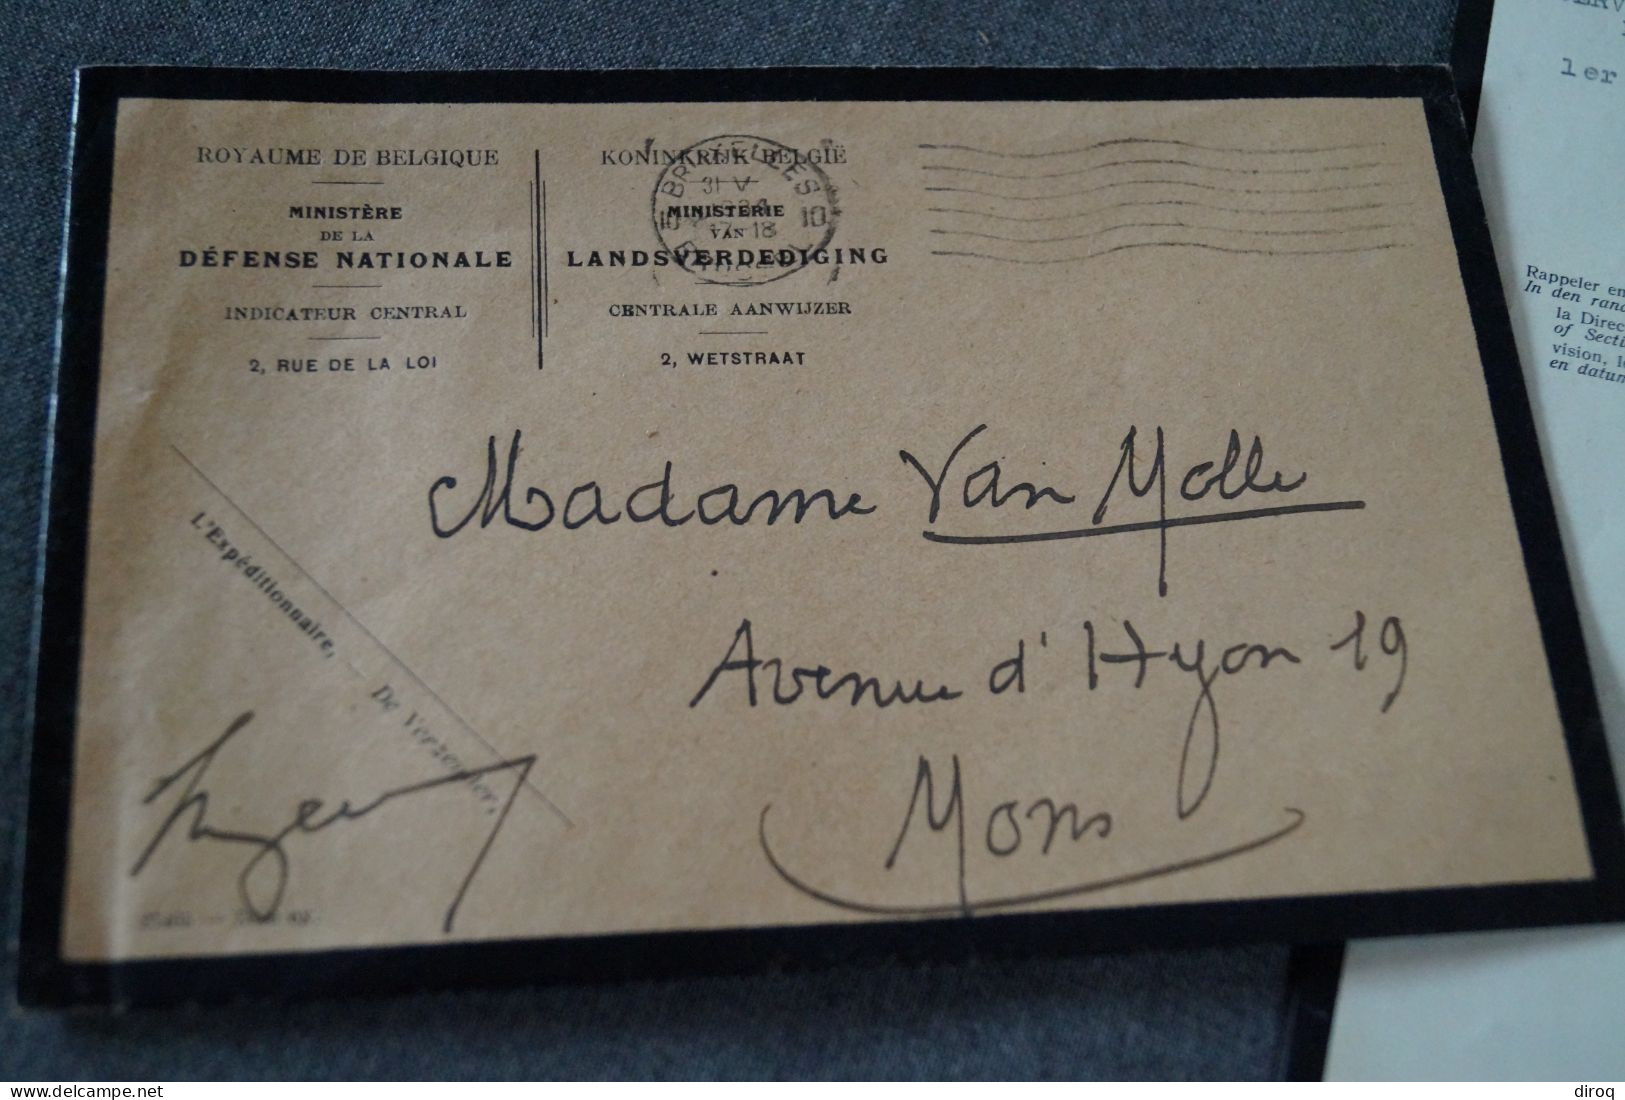 ROYAUME DE BELGIQUE
MINISTÈRE
DE LA
DÉFENSE NATIONALE
INDICATEUR CENTRAL
2, RUE DE LA LOI
KONINKRIJK BELGIË
MINISTERIE
VAN
LANDSVERDEDIGING
CENTRALE AANWIJZER
2, WETSTRAAT
BRUXELLES
31 V
17-18
10 10
Madame Van Molle
Avenue d'Hyon 19
Mons
L'Expéditionnaire, — De Verzender,
1er
Rappeler en
In den rand
la Direc
of Secti
vision, l
en datum
delcampe.net
diroq